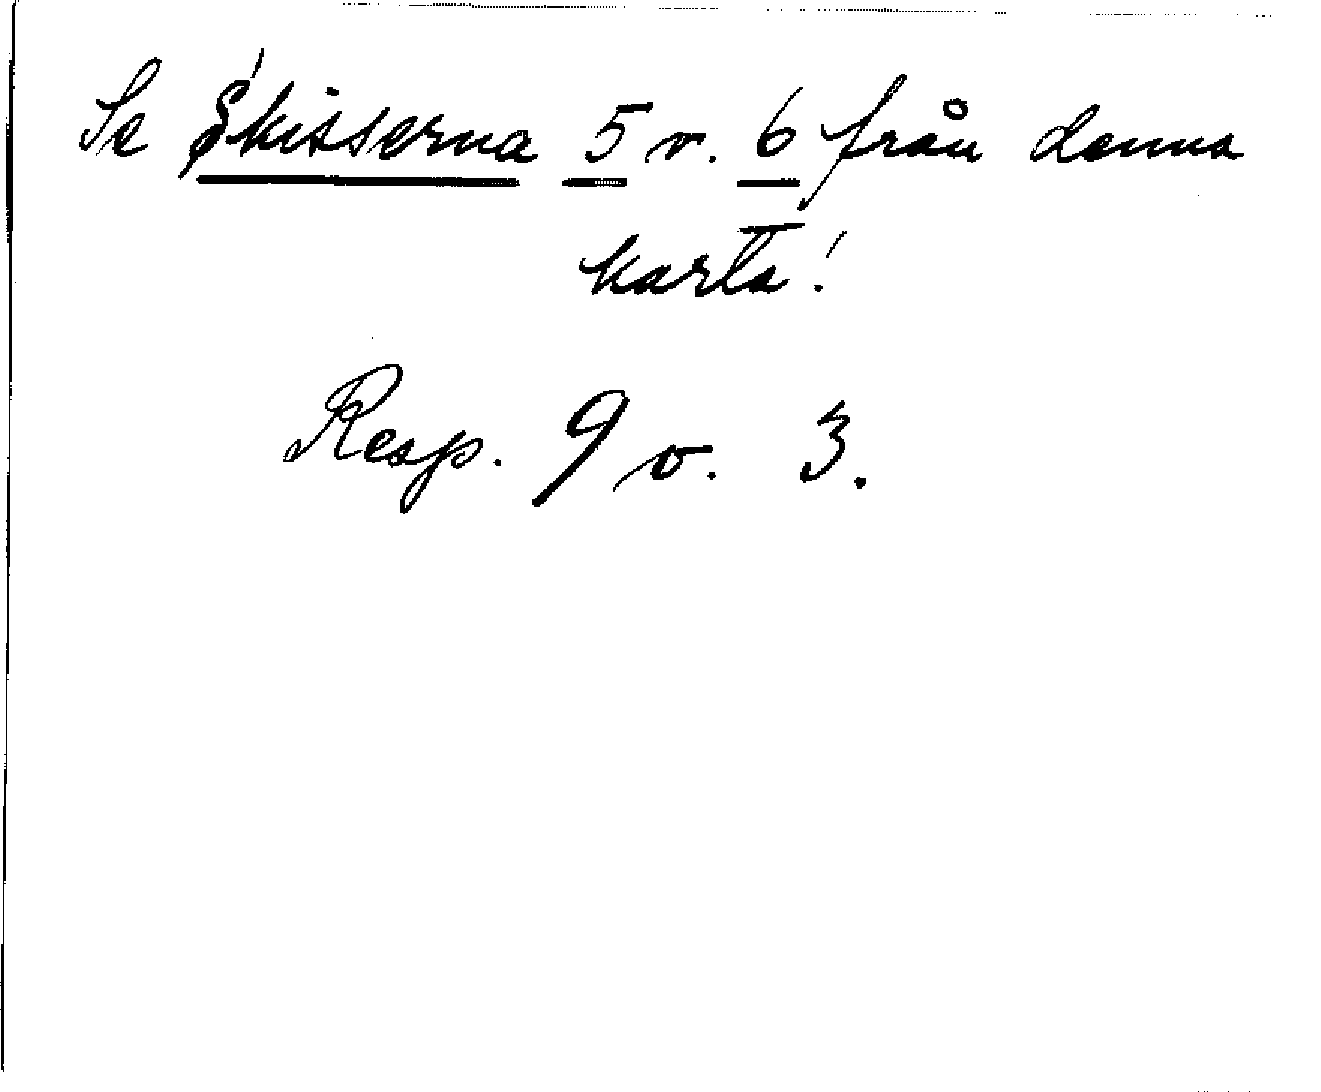 Se Skisserna 5 v. 6 från denna
karta!
Resp. 9 v. 3.